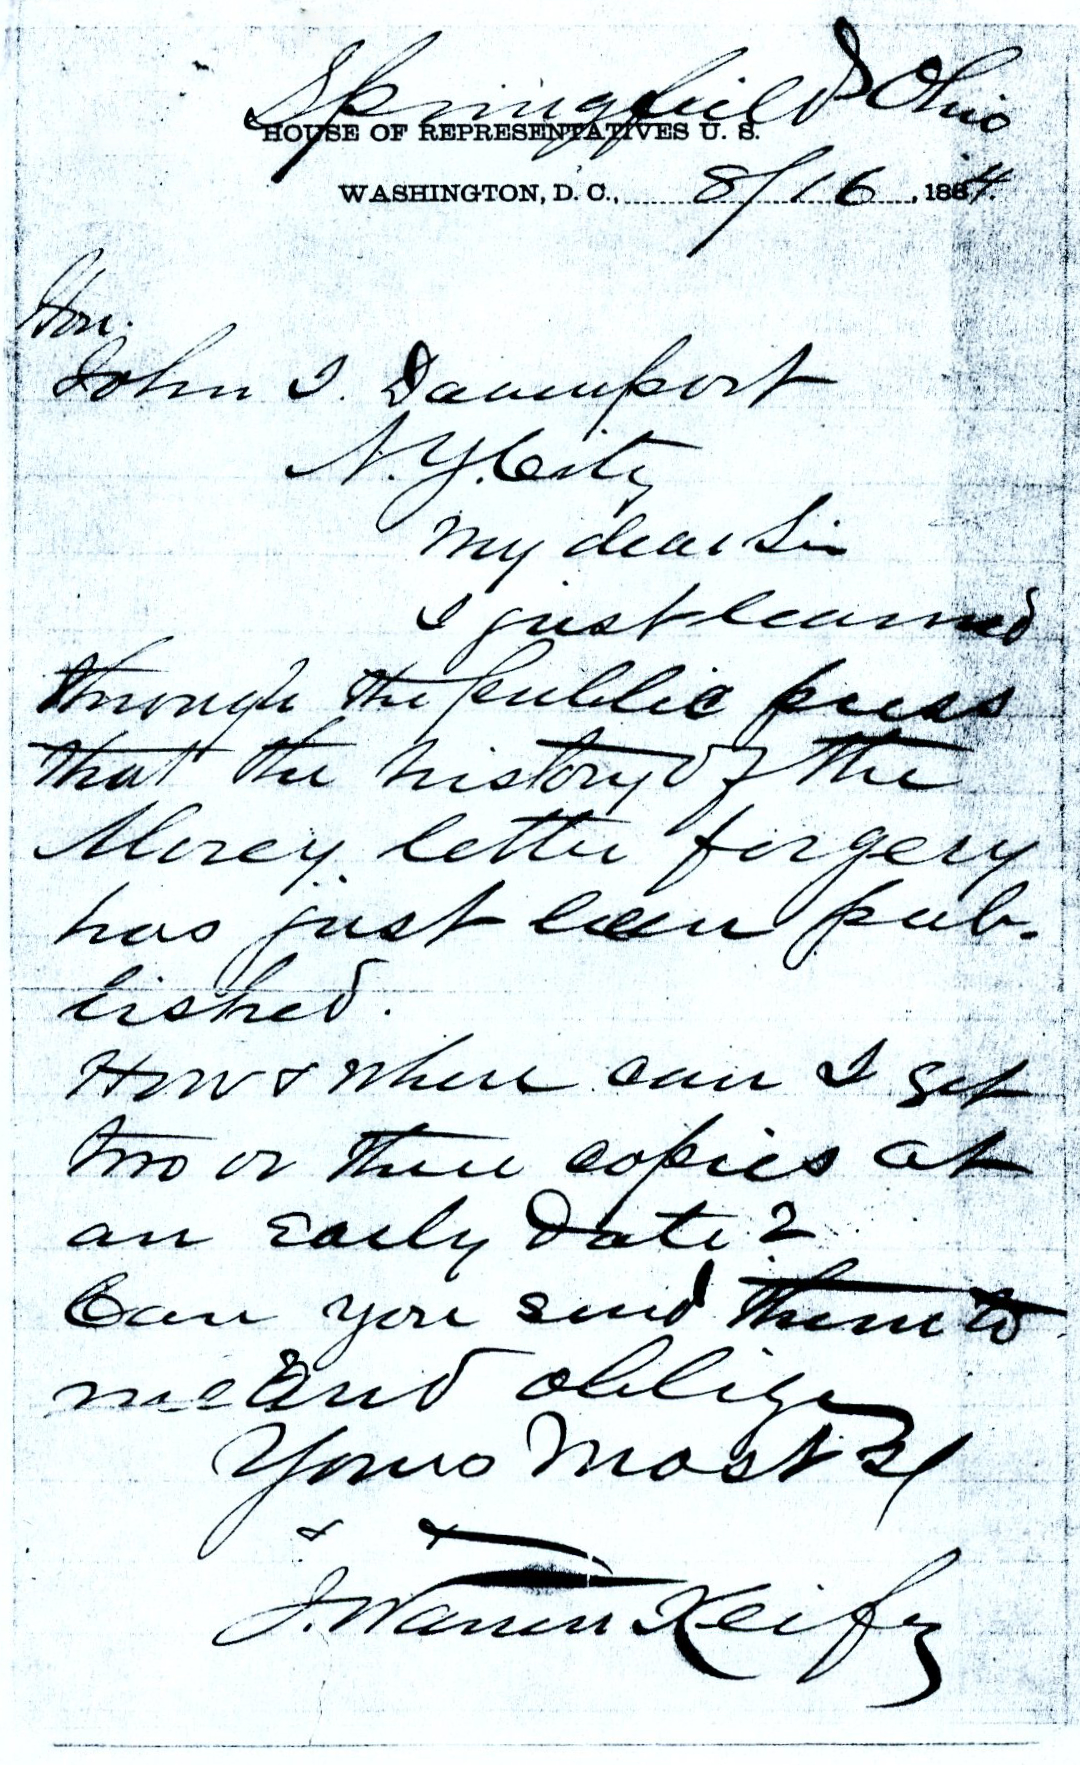 Springfield Ohio
HOUSE OF REPRESENTATIVES U. S.
WASHINGTON, D. C., 8/16, 1884.
Hon.
John I. Davenport
N.Y. City
My dear Sir
I just learned
through the public press
that the history of the
Morey letter forgery
has just been pub-
lished.
How & where can I get
two or three copies at
an Early date?
Can you send them to
me and oblige
Yours Most
J. Warren Keifer